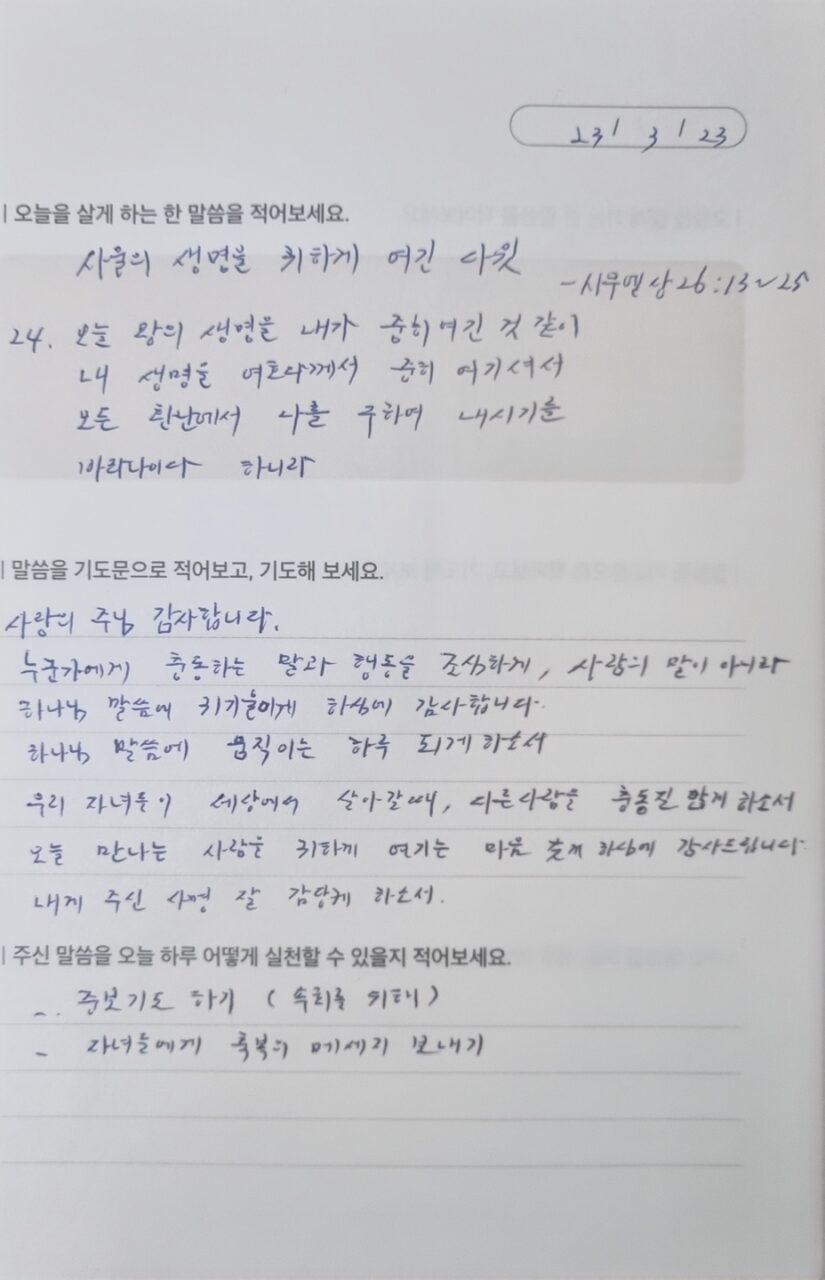 23 / 3 / 23
오늘을 살게 하는 한 말씀을 적어보세요.
사울의 생명을 귀하게 여긴 다윗
- 사무엘상 26:13~25
24. 오늘 왕의 생명을 내가 중히 여긴 것 같이
내 생명을 여호와께서 중히 여기셔서
모든 환난에서 나를 구하여 내시기를
바라나이다 하니라
말씀을 기도문으로 적어보고, 기도해 보세요.
사랑의 주님 감사합니다.
누군가에게 충동하는 말과 행동을 조심하게, 사람의 말이 아니라
하나님 말씀에 귀기울이게 하심에 감사합니다.
하나님 말씀에 움직이는 하루 되게 하소서
우리 자녀들이 세상에서 살아갈때, 다른사람을 충동질 않게 하소서
오늘 만나는 사람을 귀하게 여기는 마음 갖게 하심에 감사드립니다.
내게 주신 사명 잘 감당케 하소서.
주신 말씀을 오늘 하루 어떻게 실천할 수 있을지 적어보세요.
- 중보기도 하기 (속회를 위해)
- 자녀들에게 축복의 메세지 보내기